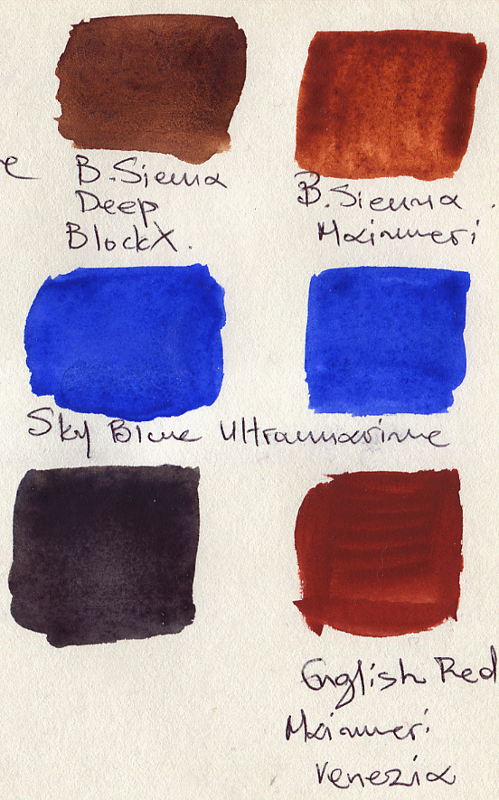 e
B.Sienna
Deep
BlockX.
B.Sienna.
Maimeri
Sky Blue Ultramarine
English Red
Maimeri
Venezia